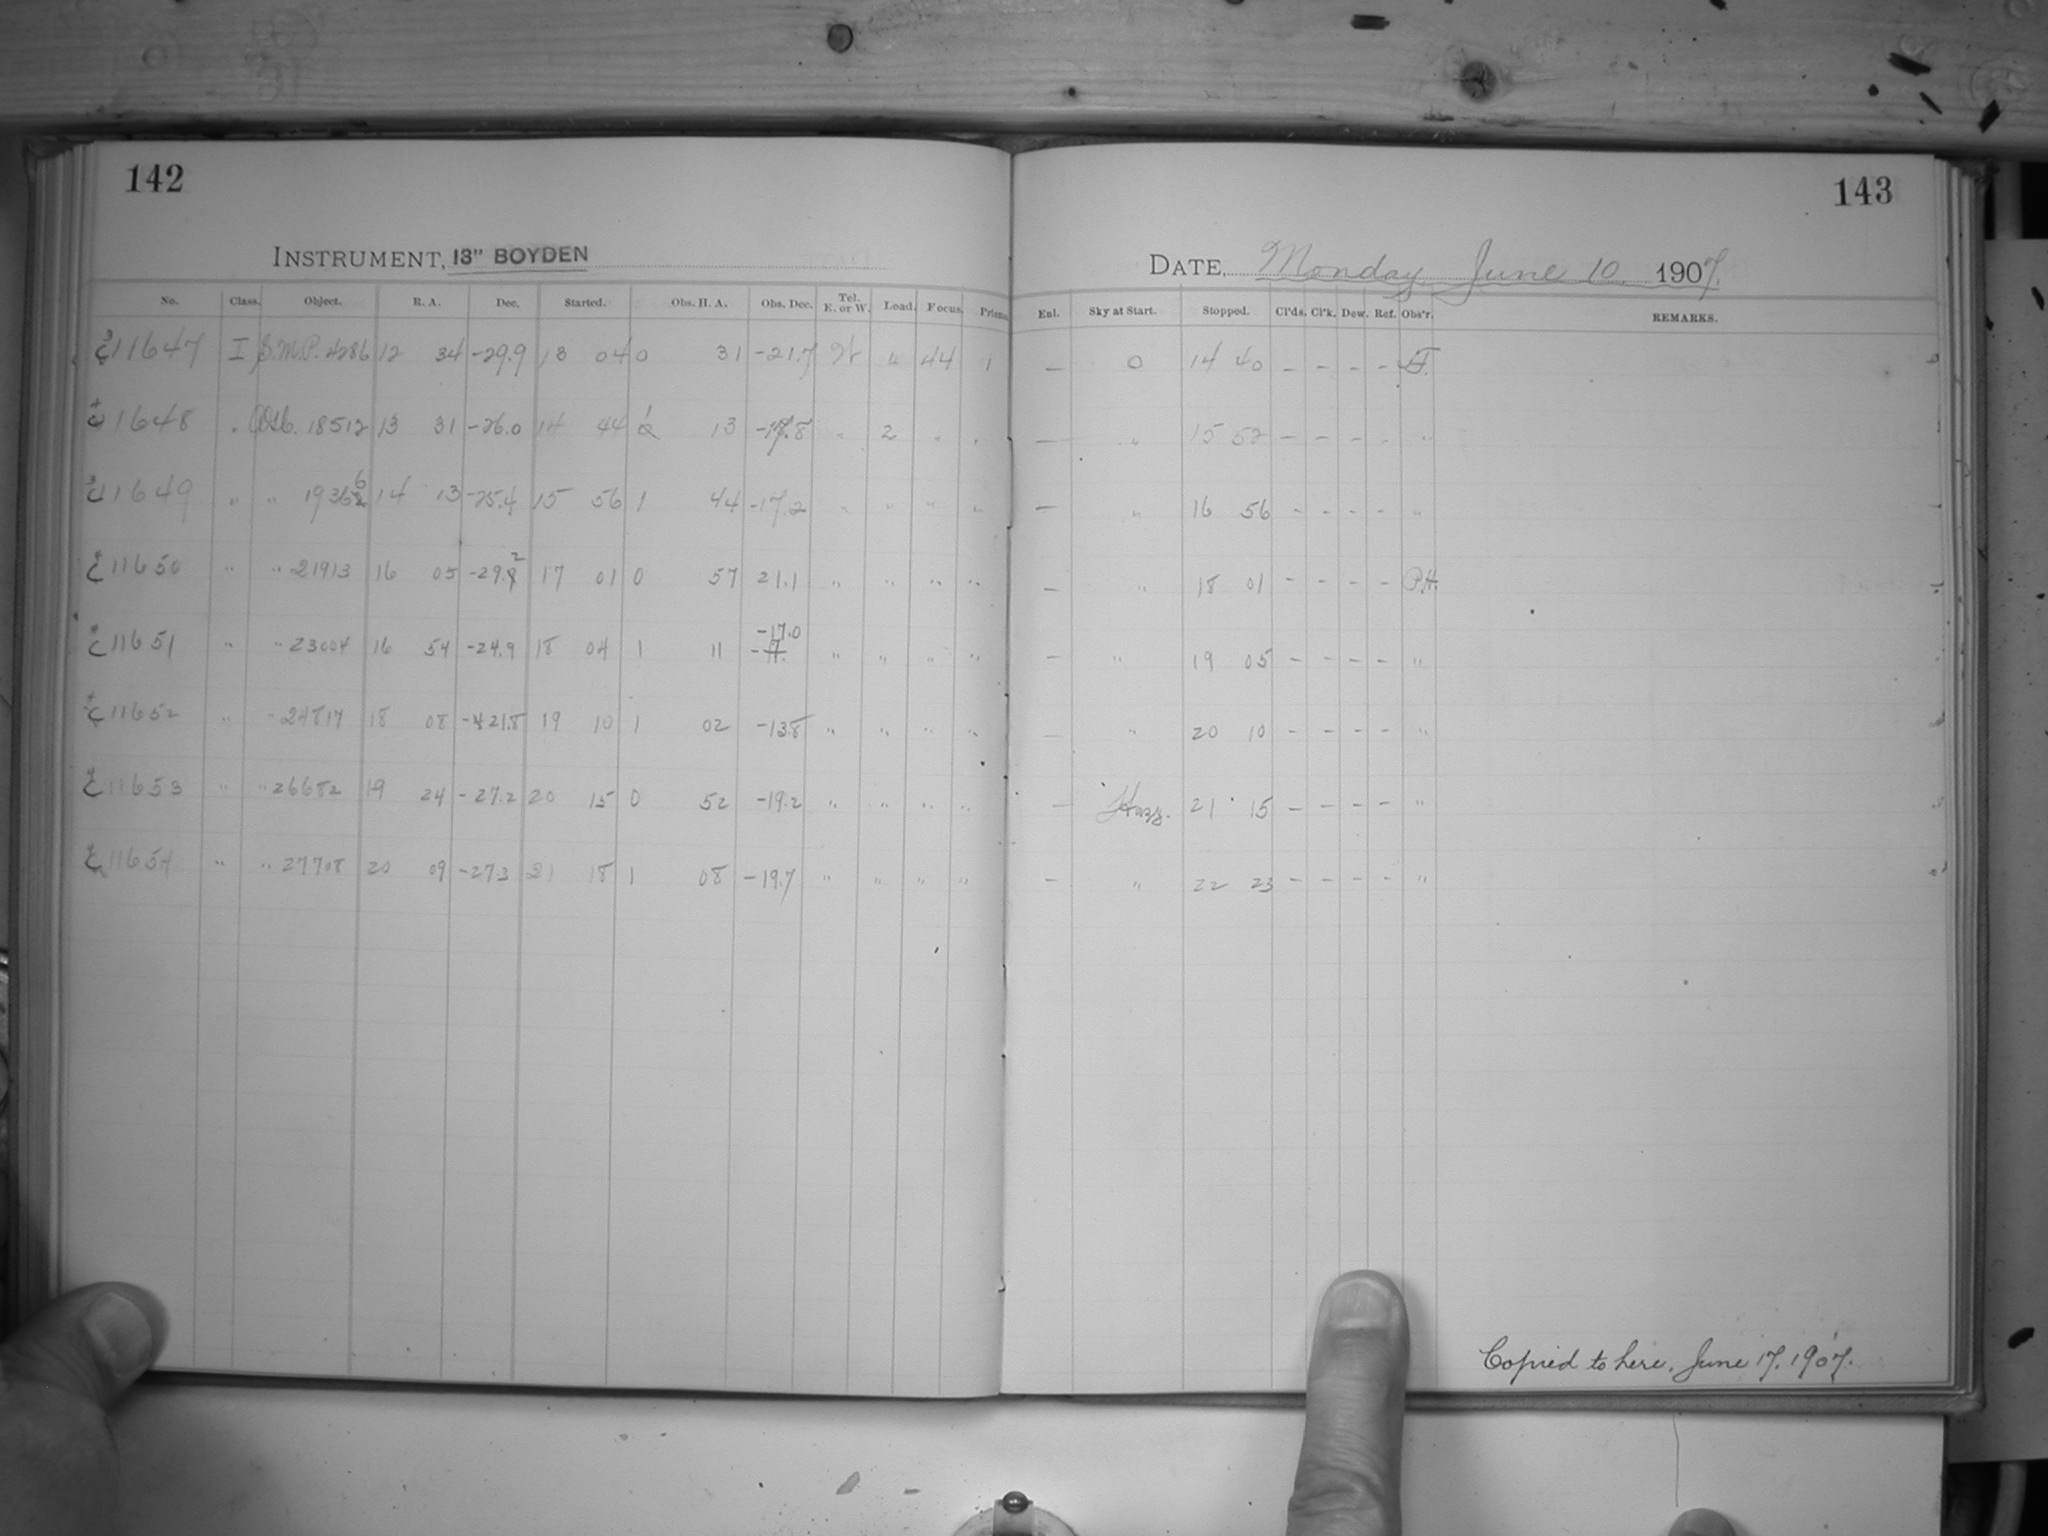 142
INSTRUMENT, 13" BOYDEN
No. Class. Object. R. A. Dec. Started. Obs. H. A. Obs. Dec. Tel. E. or W. Load. Focus. Prisms.
11647 I S.M.P. 4286 12 34 -29.9 13 04 0 31 -21.7 44 1
11648 18512 13 31 -26.0 14 44 1 13 -17.8 " 2 " "
11649 " " 19366 14 13 -25.4 15 56 1 44 -17.2 " " " "
11650 " " 21913 16 05 -29.2 17 01 0 57 21.1 " " " "
11651 " " 23004 16 54 -24.9 18 04 1 11 -17.0 " " " "
11652 " " 24817 18 08 -21.8 19 10 1 02 -13.8 " " " "
11653 " " 26682 19 24 -27.2 20 15 0 52 -19.2 " " " "
11654 " " 27708 20 09 -27.3 21 18 1 08 -19.7 " " " "
143
DATE, Monday June 10 1907.
Enl. Sky at Start. Stopped. Cl'ds. Cl'k. Dew. Ref. Obs'r. REMARKS.
— 0 14 40 - - - -
— " 15 52 - - - - "
— " 16 56 - - - - "
— " 18 01 - - - - P.H.
— " 19 05 - - - - "
— " 20 10 - - - - "
— Hazy. 21 15 - - - - "
— " 22 23 - - - - "
Copied to here, June 17, 1907.